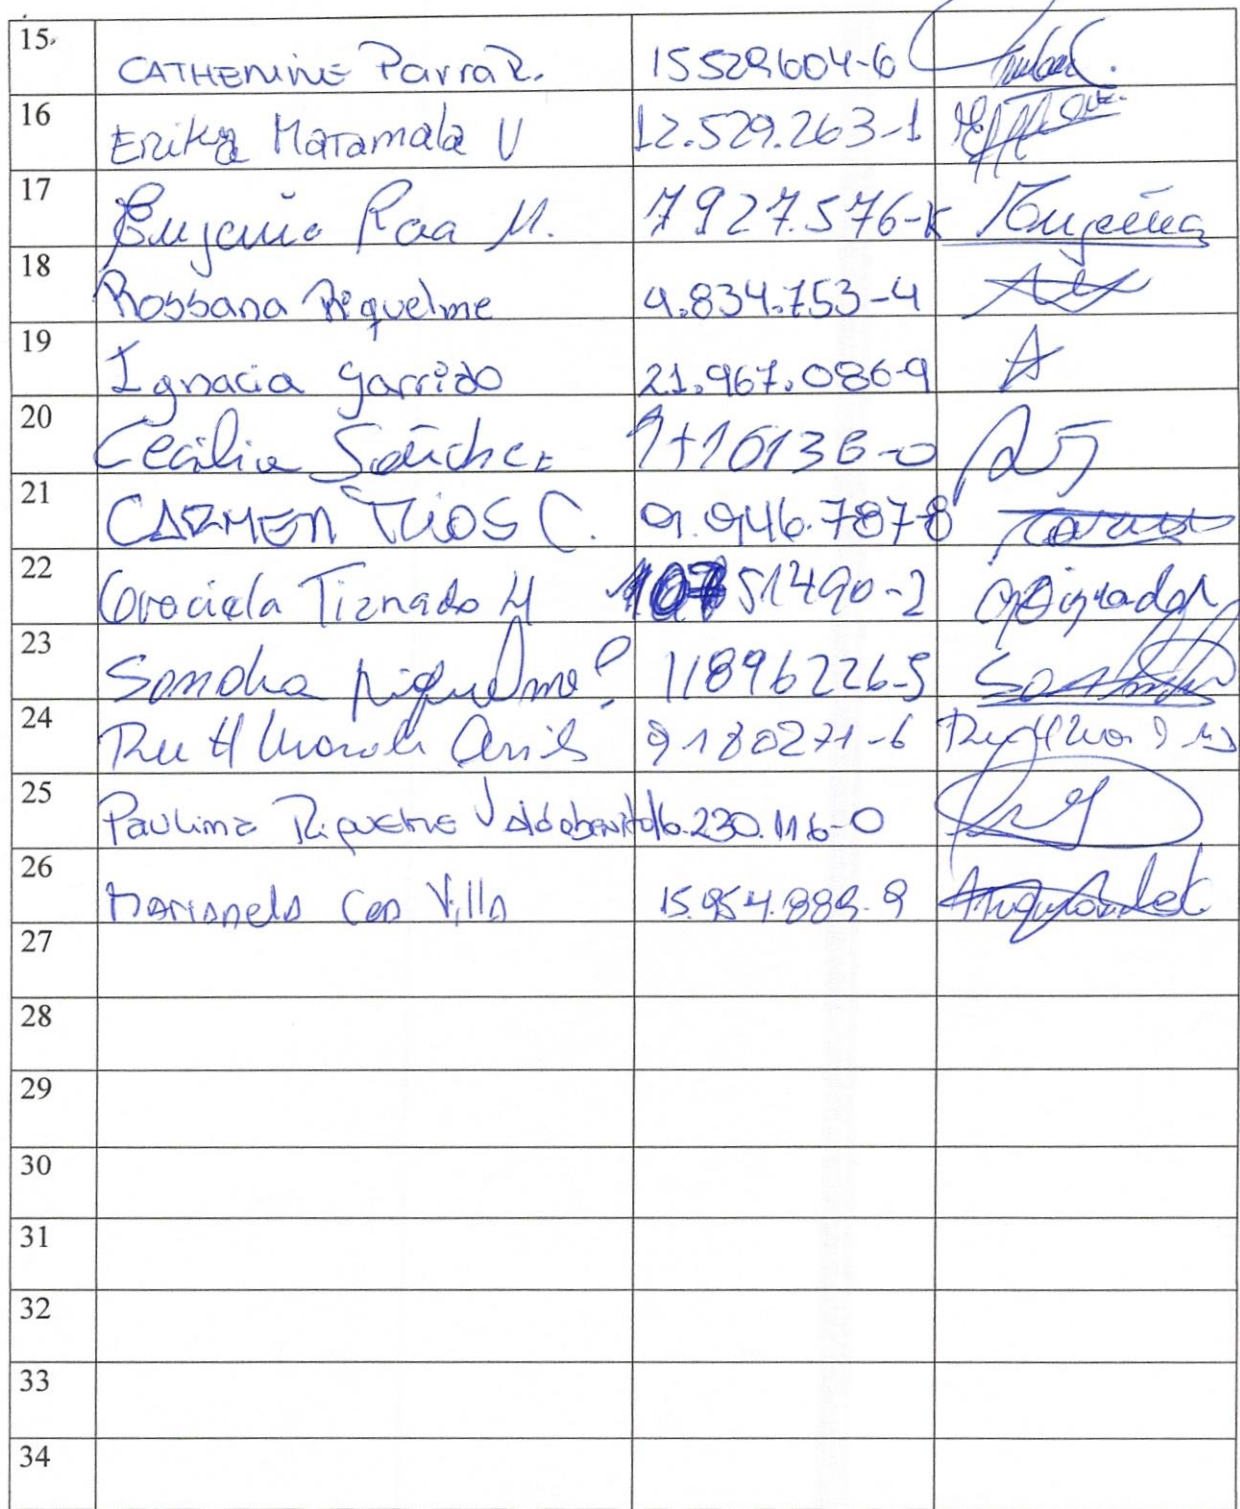 15. CATHERINE Parra R. 15529604-6
16 Erika Matamala V 12.529.263-1
17 Eugenia Roa M. 7927.576-K Eugenia
18 Rossana Riquelme 9.834.753-4
19 Ignacia Garrido 21.967.086-9 A
20 Cecilia Sánchez
21 CARMEN RIOS C. 9.946.787-8
22 Graciela Tiznado H 10751490-2
23 Sandra Riquelme 11896226-5
24 Ruth 9180271-6
25 Paulina Riquelme Valdebenito 16.230.116-0
26 Marianela Cea Villa 15.954.889-8
27
28
29
30
31
32
33
34